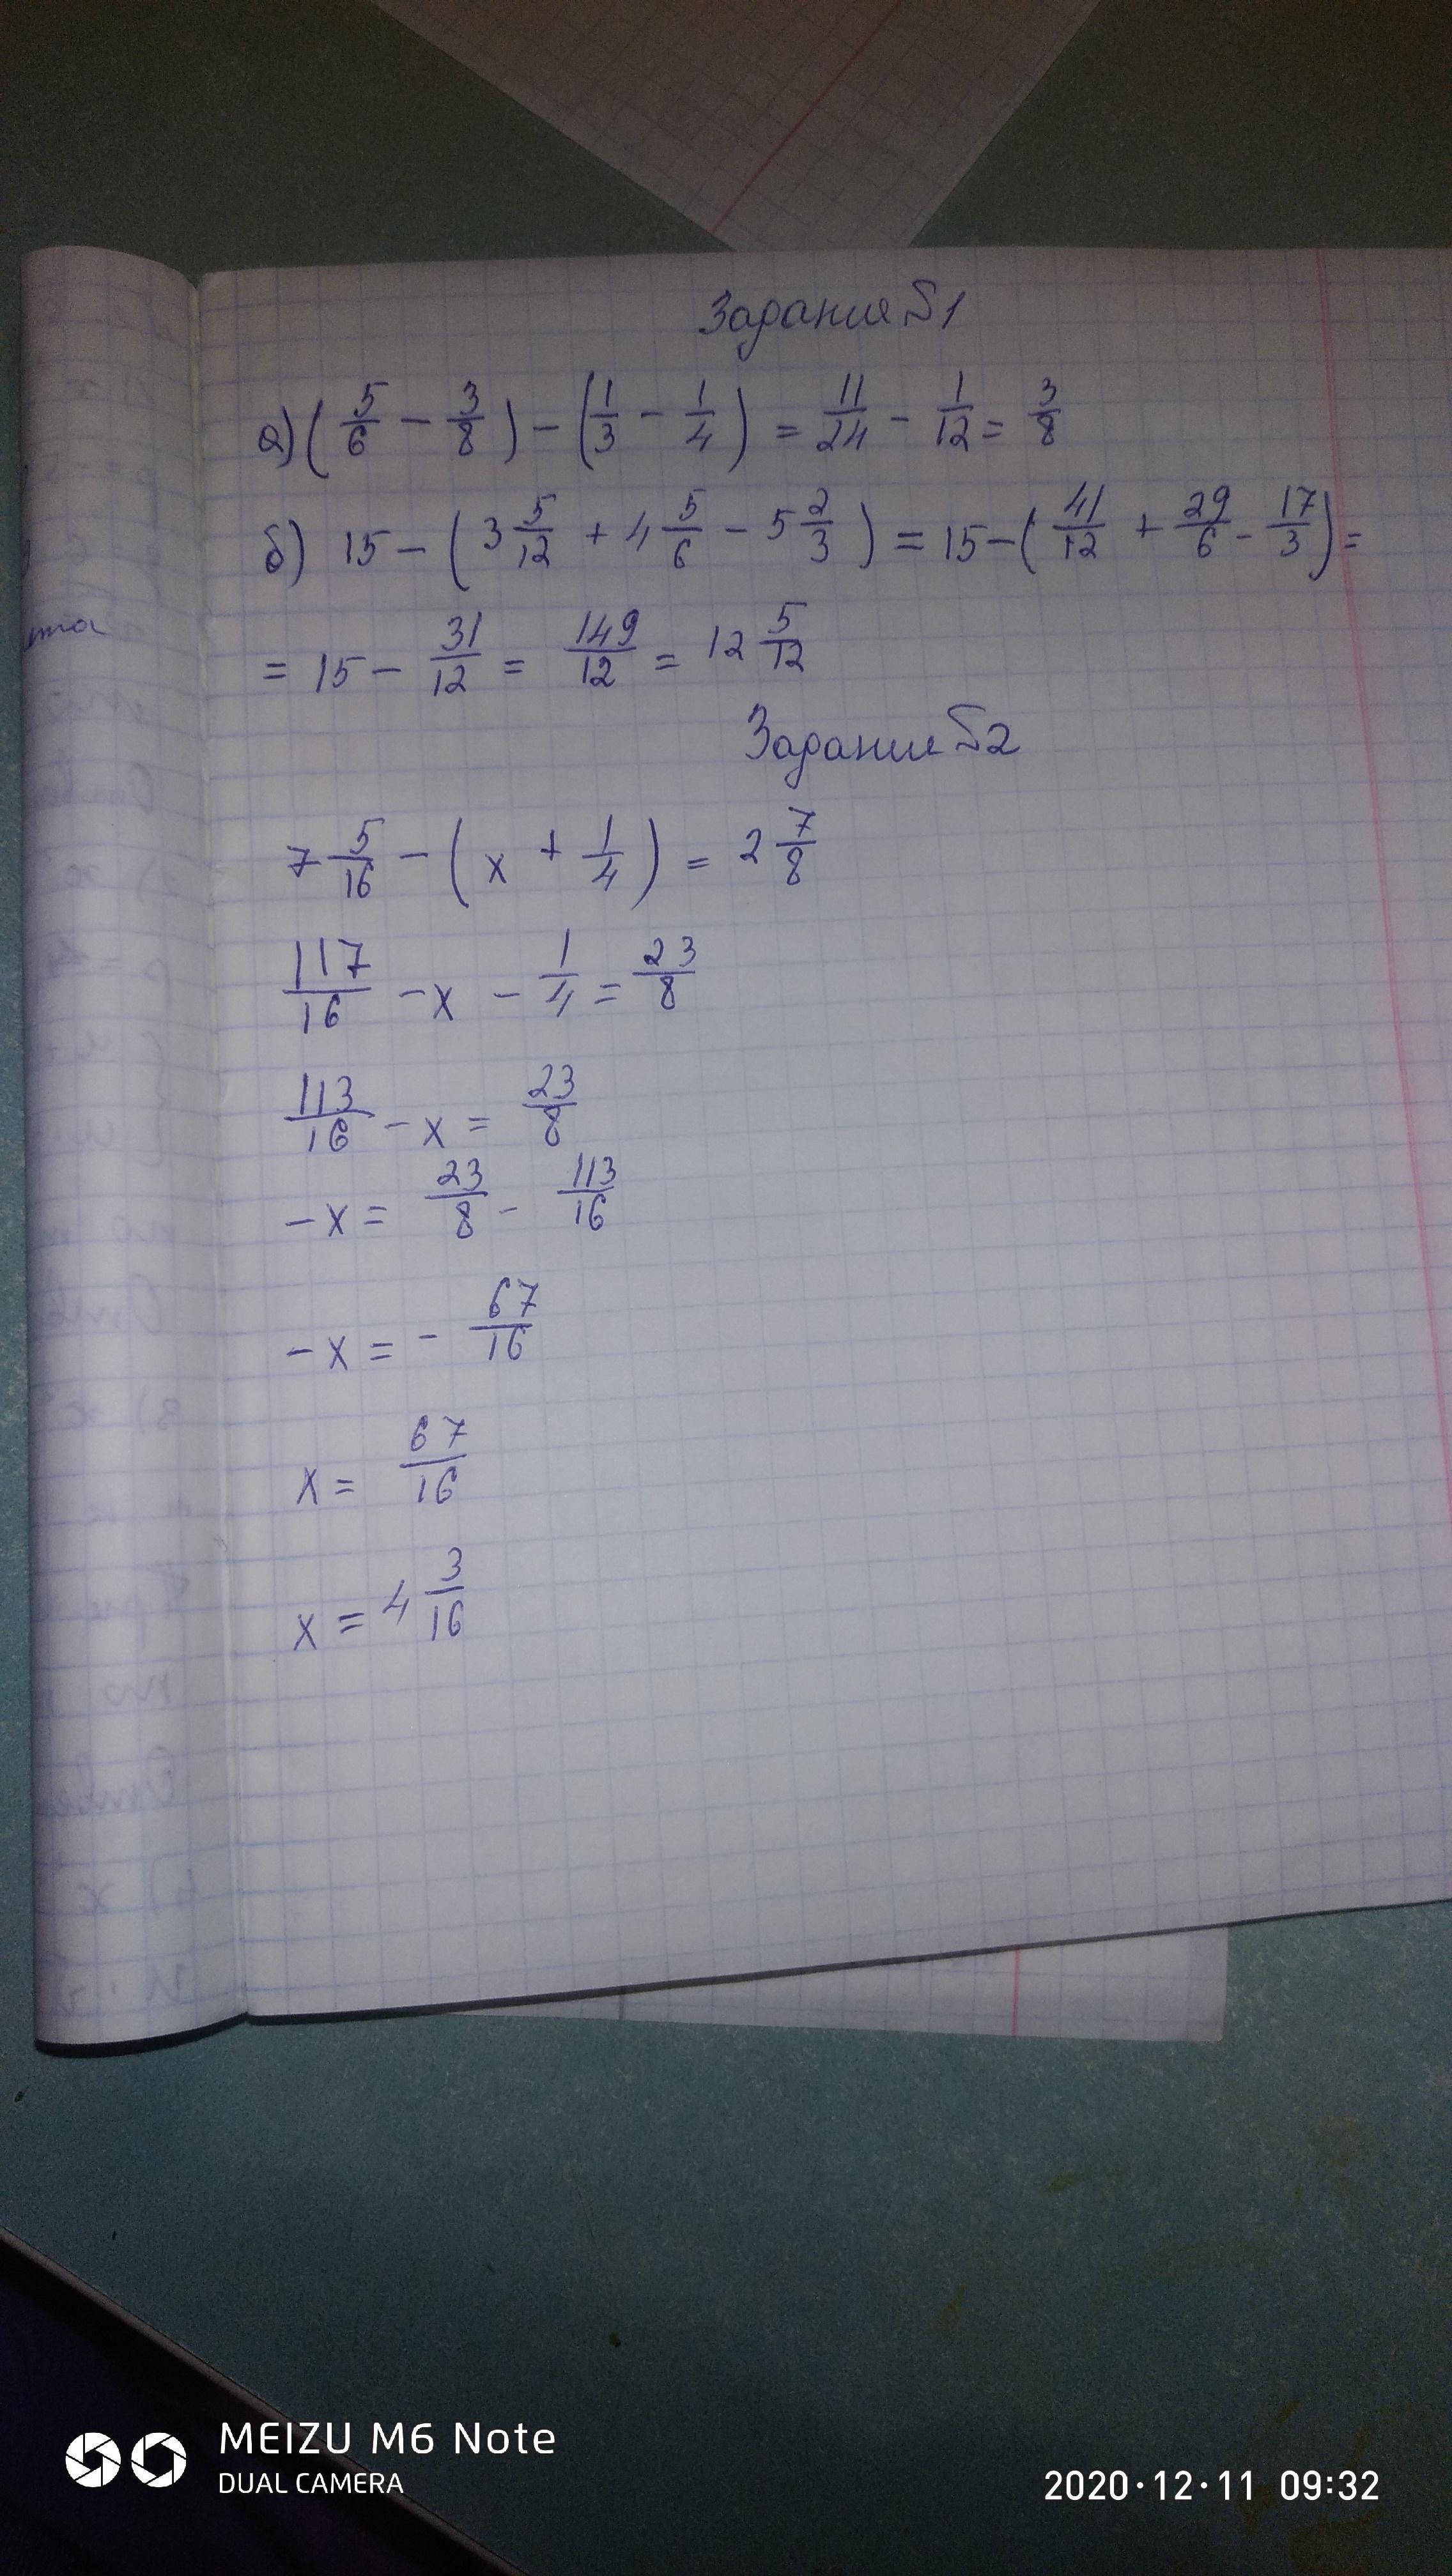 Задания №1
а) (5/6 − 3/8) − (1/3 − 1/4) = 11/24 − 1/12 = 3/8
б) 15 − (3 5/12 + 4 5/6 − 5 2/3) = 15 − (41/12 + 29/6 − 17/3) =
= 15 − 31/12 = 149/12 = 12 5/12
Задание №2
7 5/16 − (x + 1/4) = 2 7/8
117/16 − x − 1/4 = 23/8
113/16 − x = 23/8
−x = 23/8 − 113/16
−x = − 67/16
x = 67/16
x = 4 3/16
MEIZU M6 Note
DUAL CAMERA
2020·12·11 09:32